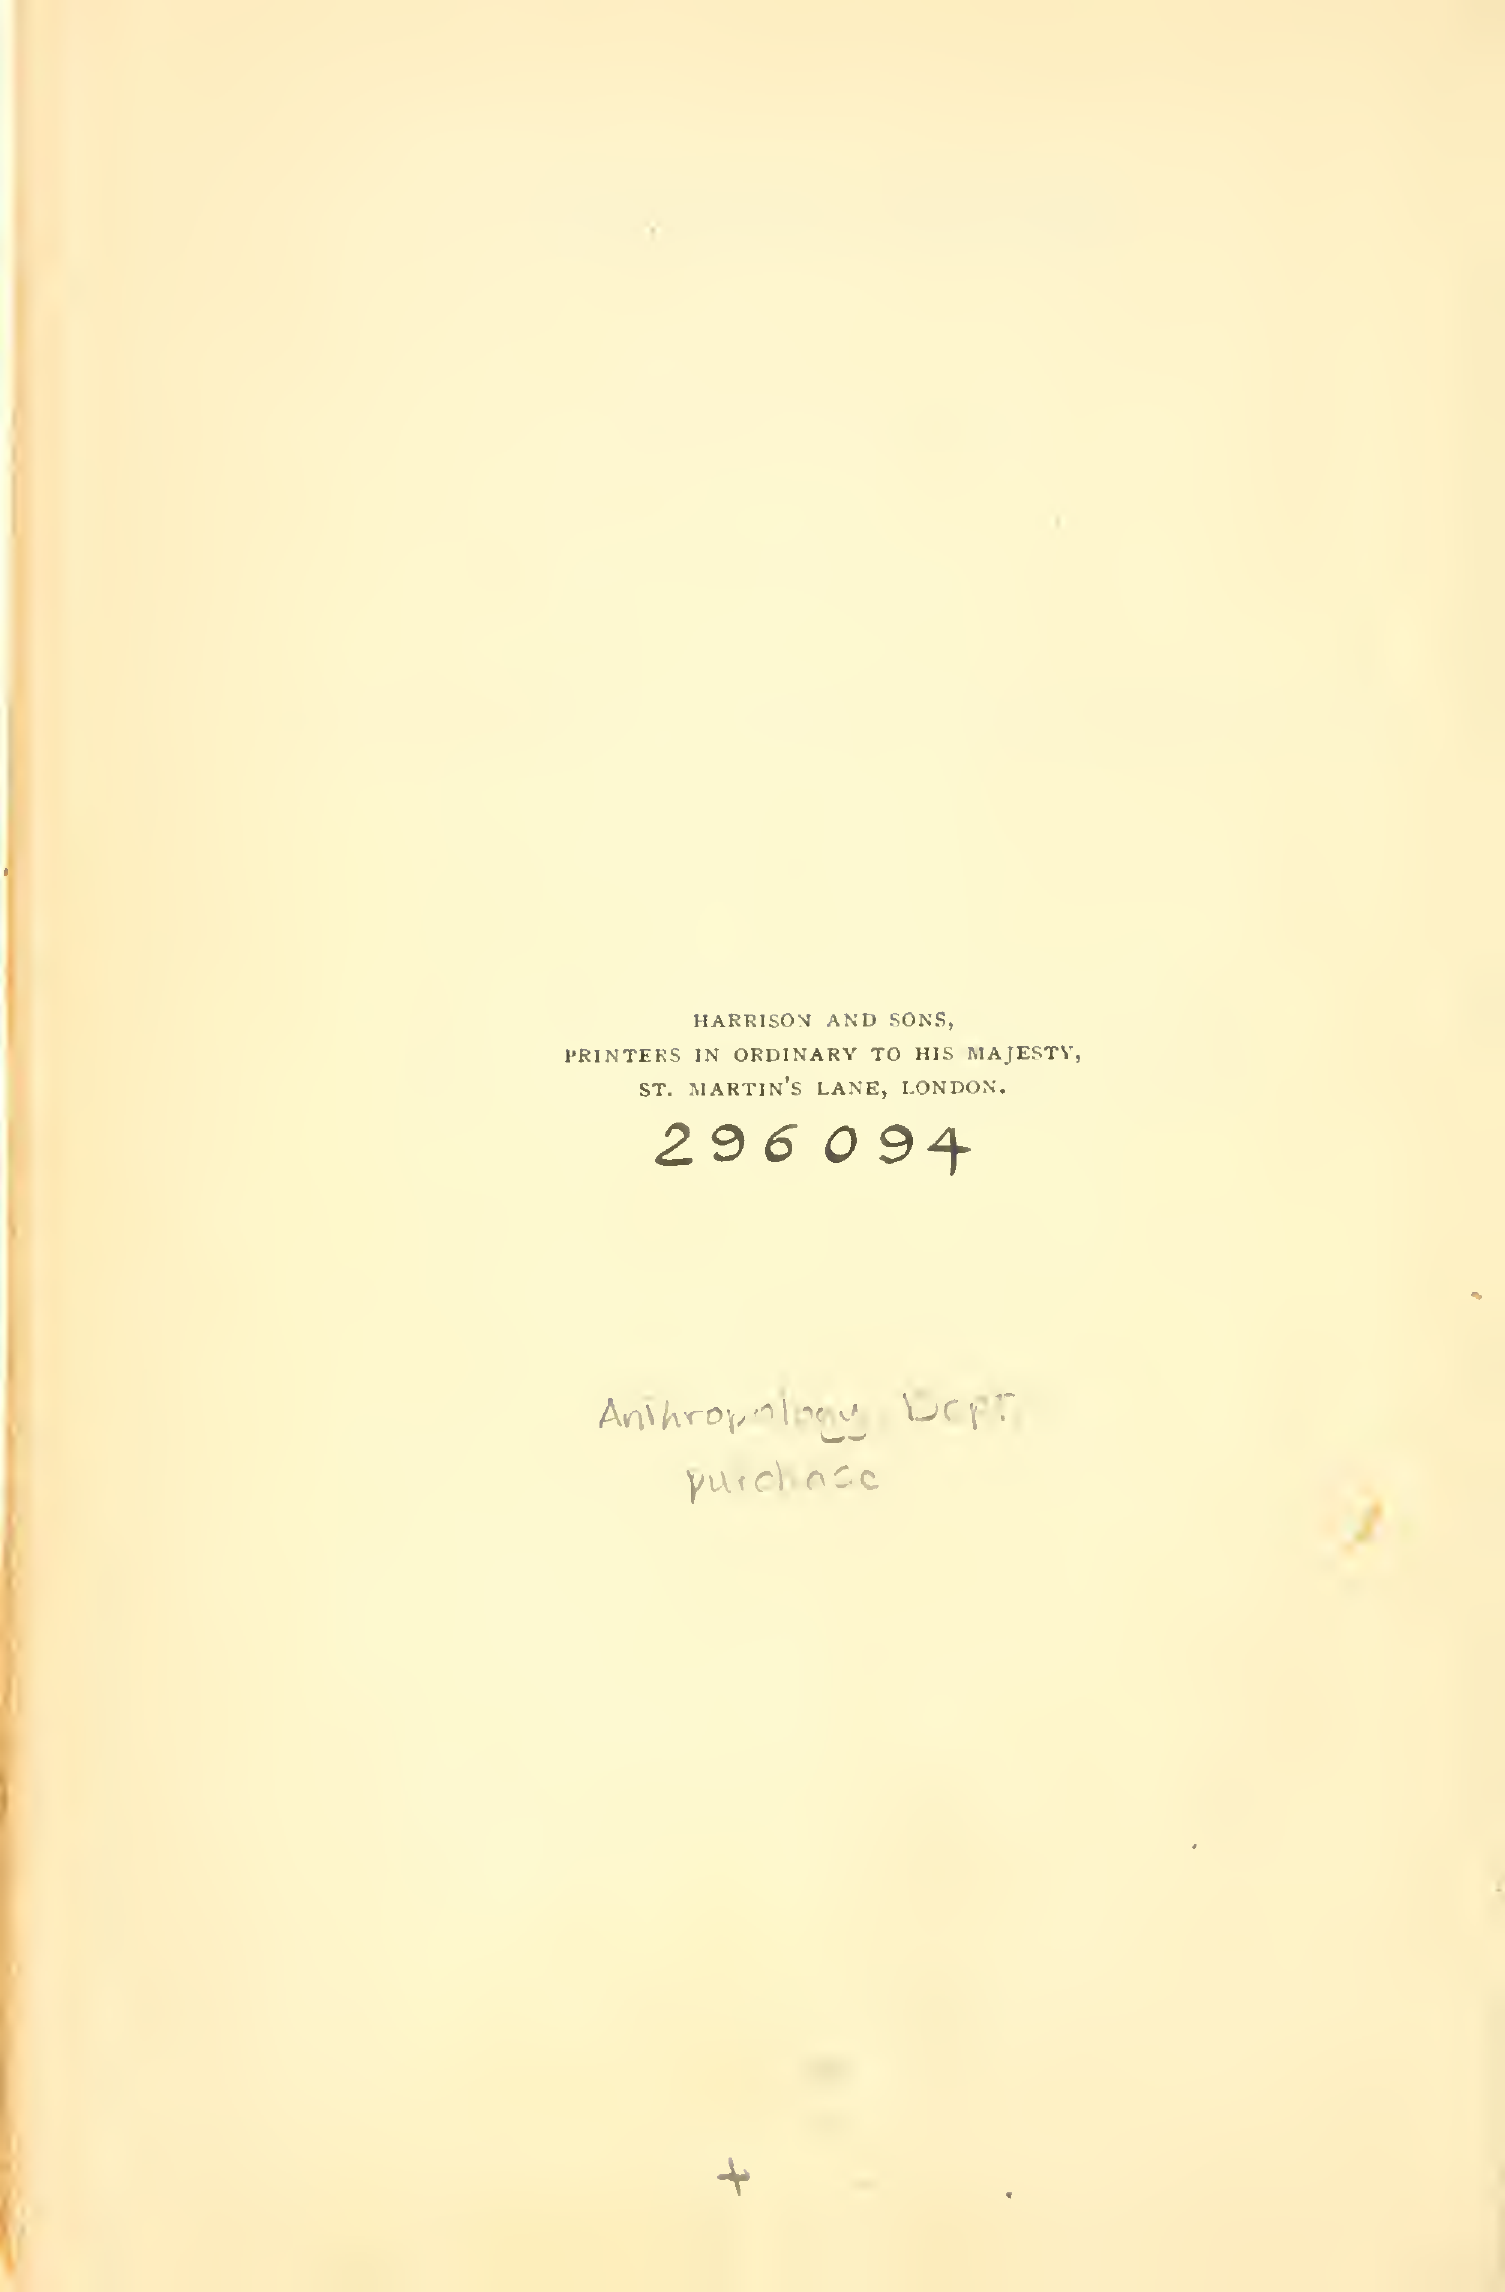 HARRISON AND SONS,
PRINTERS IN ORDINARY TO HIS MAJESTY,
ST. MARTIN'S LANE, LONDON.
296094
Anthropology Dept.
purchase
+